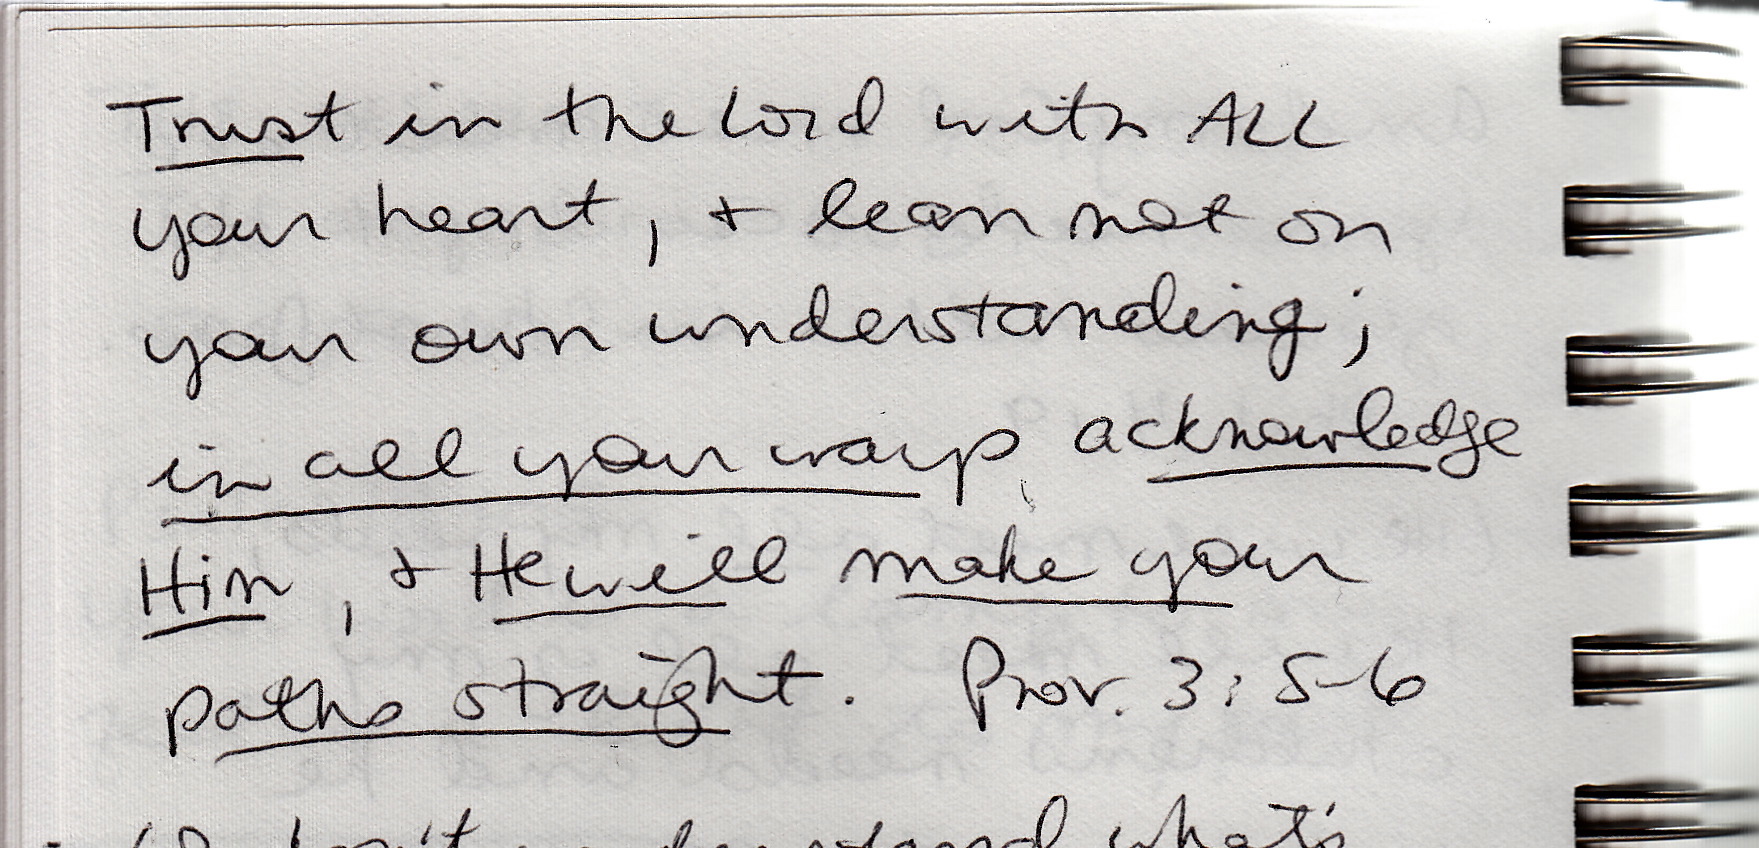 Trust in the Lord with ALL
your heart, + lean not on
your own understanding;
in all your ways acknowledge
Him, + He will make your
paths straight. Prov. 3:5-6
don't understand what's